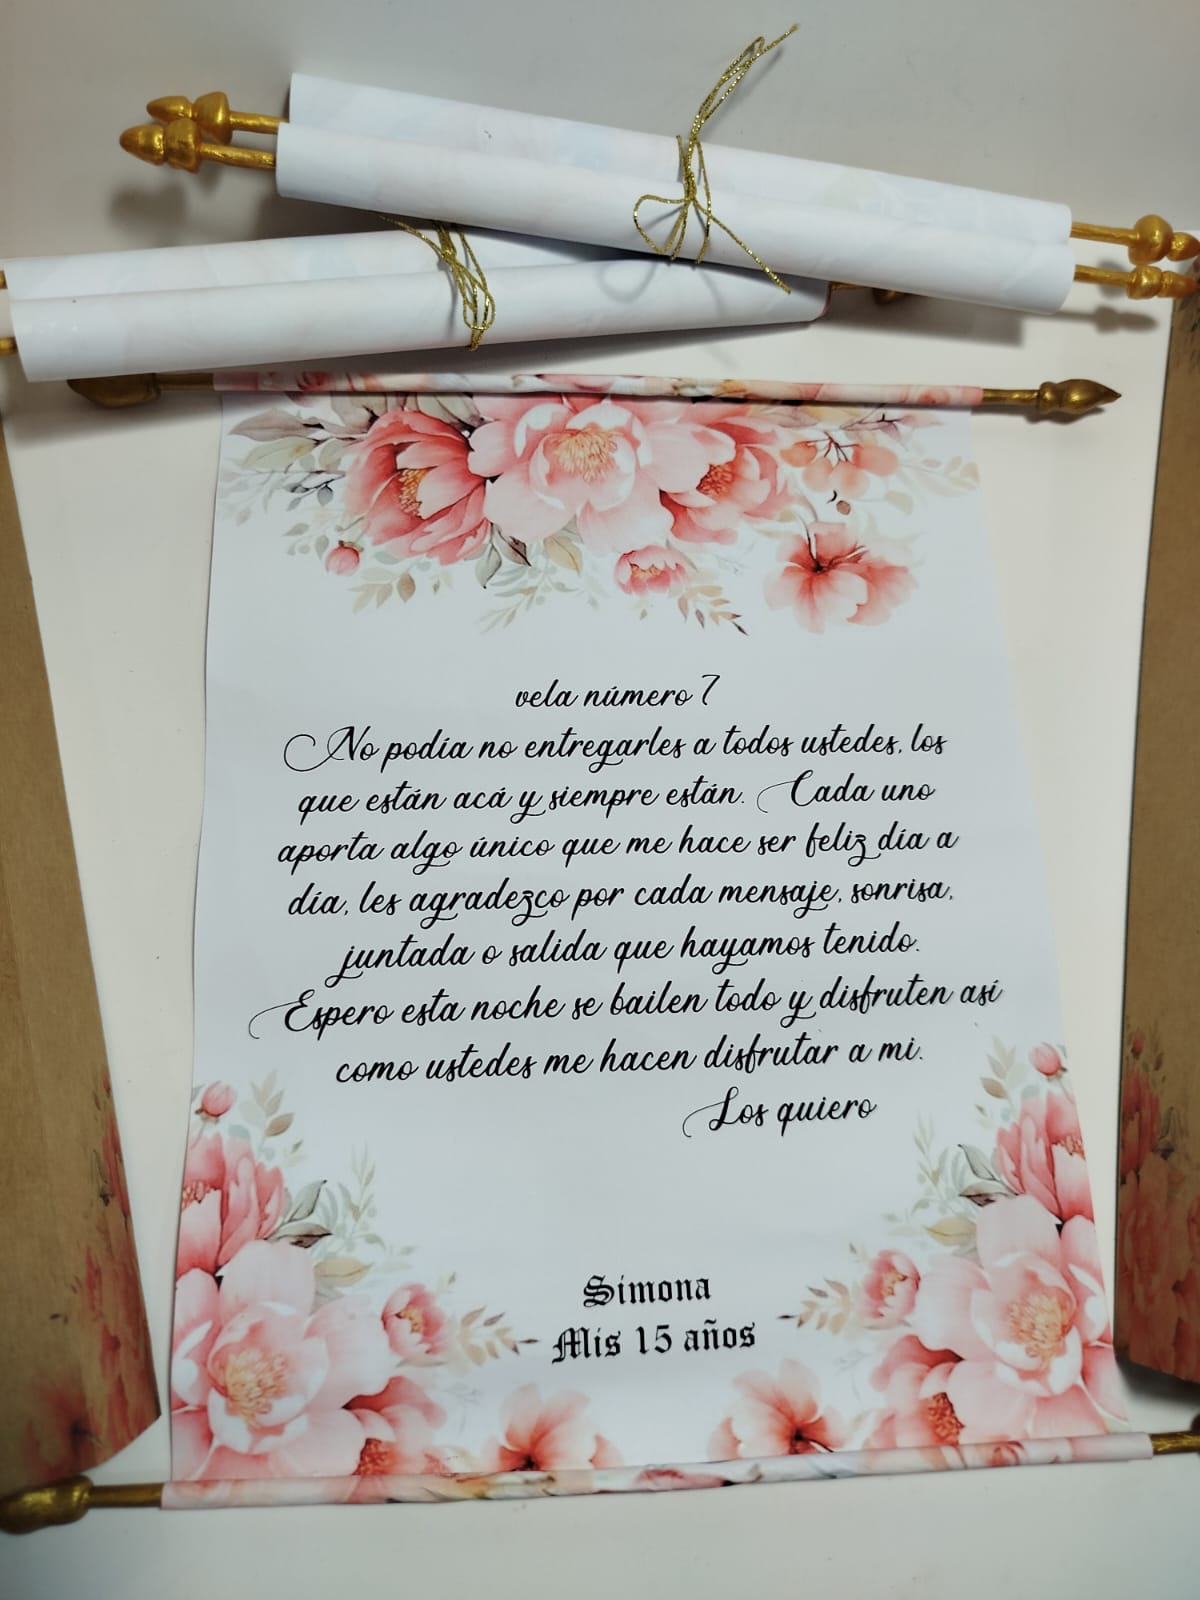 vela número 7
No podía no entregarles a todos ustedes, los
que están acá y siempre están. Cada uno
aporta algo único que me hace ser feliz día a
día, les agradezco por cada mensaje, sonrisa,
juntada o salida que hayamos tenido.
Espero esta noche se bailen todo y disfruten así
como ustedes me hacen disfrutar a mi.
Los quiero
Simona
Mis 15 años